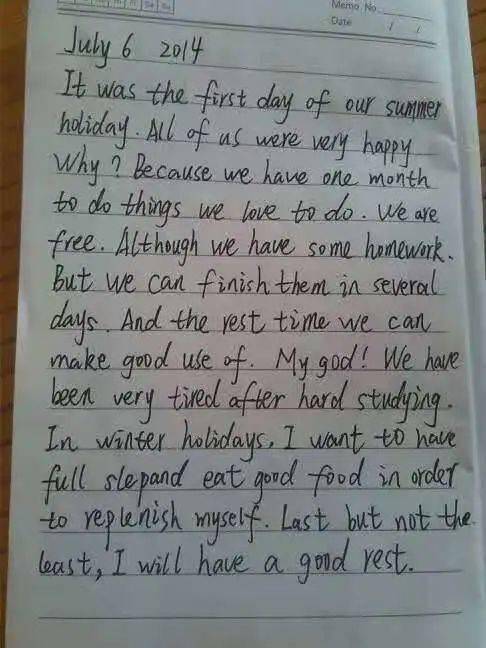 Memo. No.
Date / /
July 6 2014
It was the first day of our summer
holiday. All of us were very happy
Why? Because we have one month
to do things we love to do. We are
free. Although we have some homework.
But we can finish them in several
days. And the rest time we can
make good use of. My god! We have
been very tired after hard studying.
In winter holidays, I want to have
full slepand eat good food in order
to replenish myself. Last but not the
least, I will have a good rest.